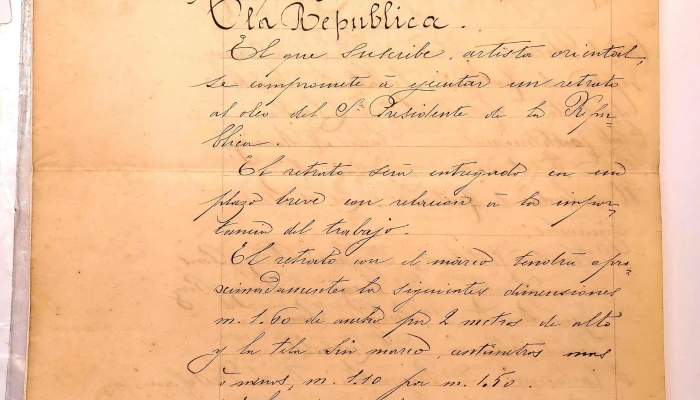 é la Republica.
El que suscribe, artista oriental,
se compromete á ejecutar un retrato
al oleo del Sr. Presidente de la Repu-
blica.
El retrato será entregado en un
plazo breve con relacion á la impor-
tancia del trabajo.
El retrato con el márco tendrá apro-
ximadamente la siguientes dimensiones
m. 1.60 de ancho por 2 metros de alto
y la tela sin marco, centimetros mas
ó menos, m. 1.10 por m. 1.50.